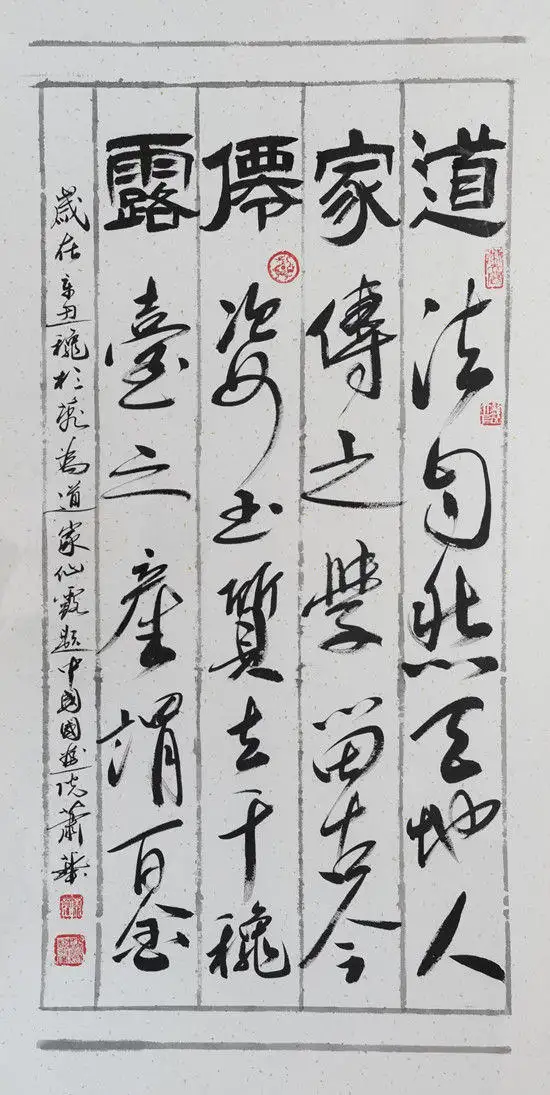 道法自然天地人
家傳之學留古今
僊姿玉質去千穐
露臺之產謂百金
歲在辛丑穐於為道家仙露題中國國畫院蕭華